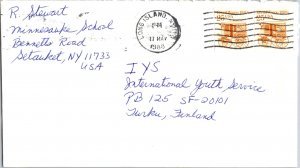 R. Stewart
Minnesauke School
Bennetts Road
Setauket, NY 11733
USA
LONG ISLAND, N.Y. 117
PM
17 MAY
IYS
International Youth Service
PB 125 SF-20101
Turku, Finland